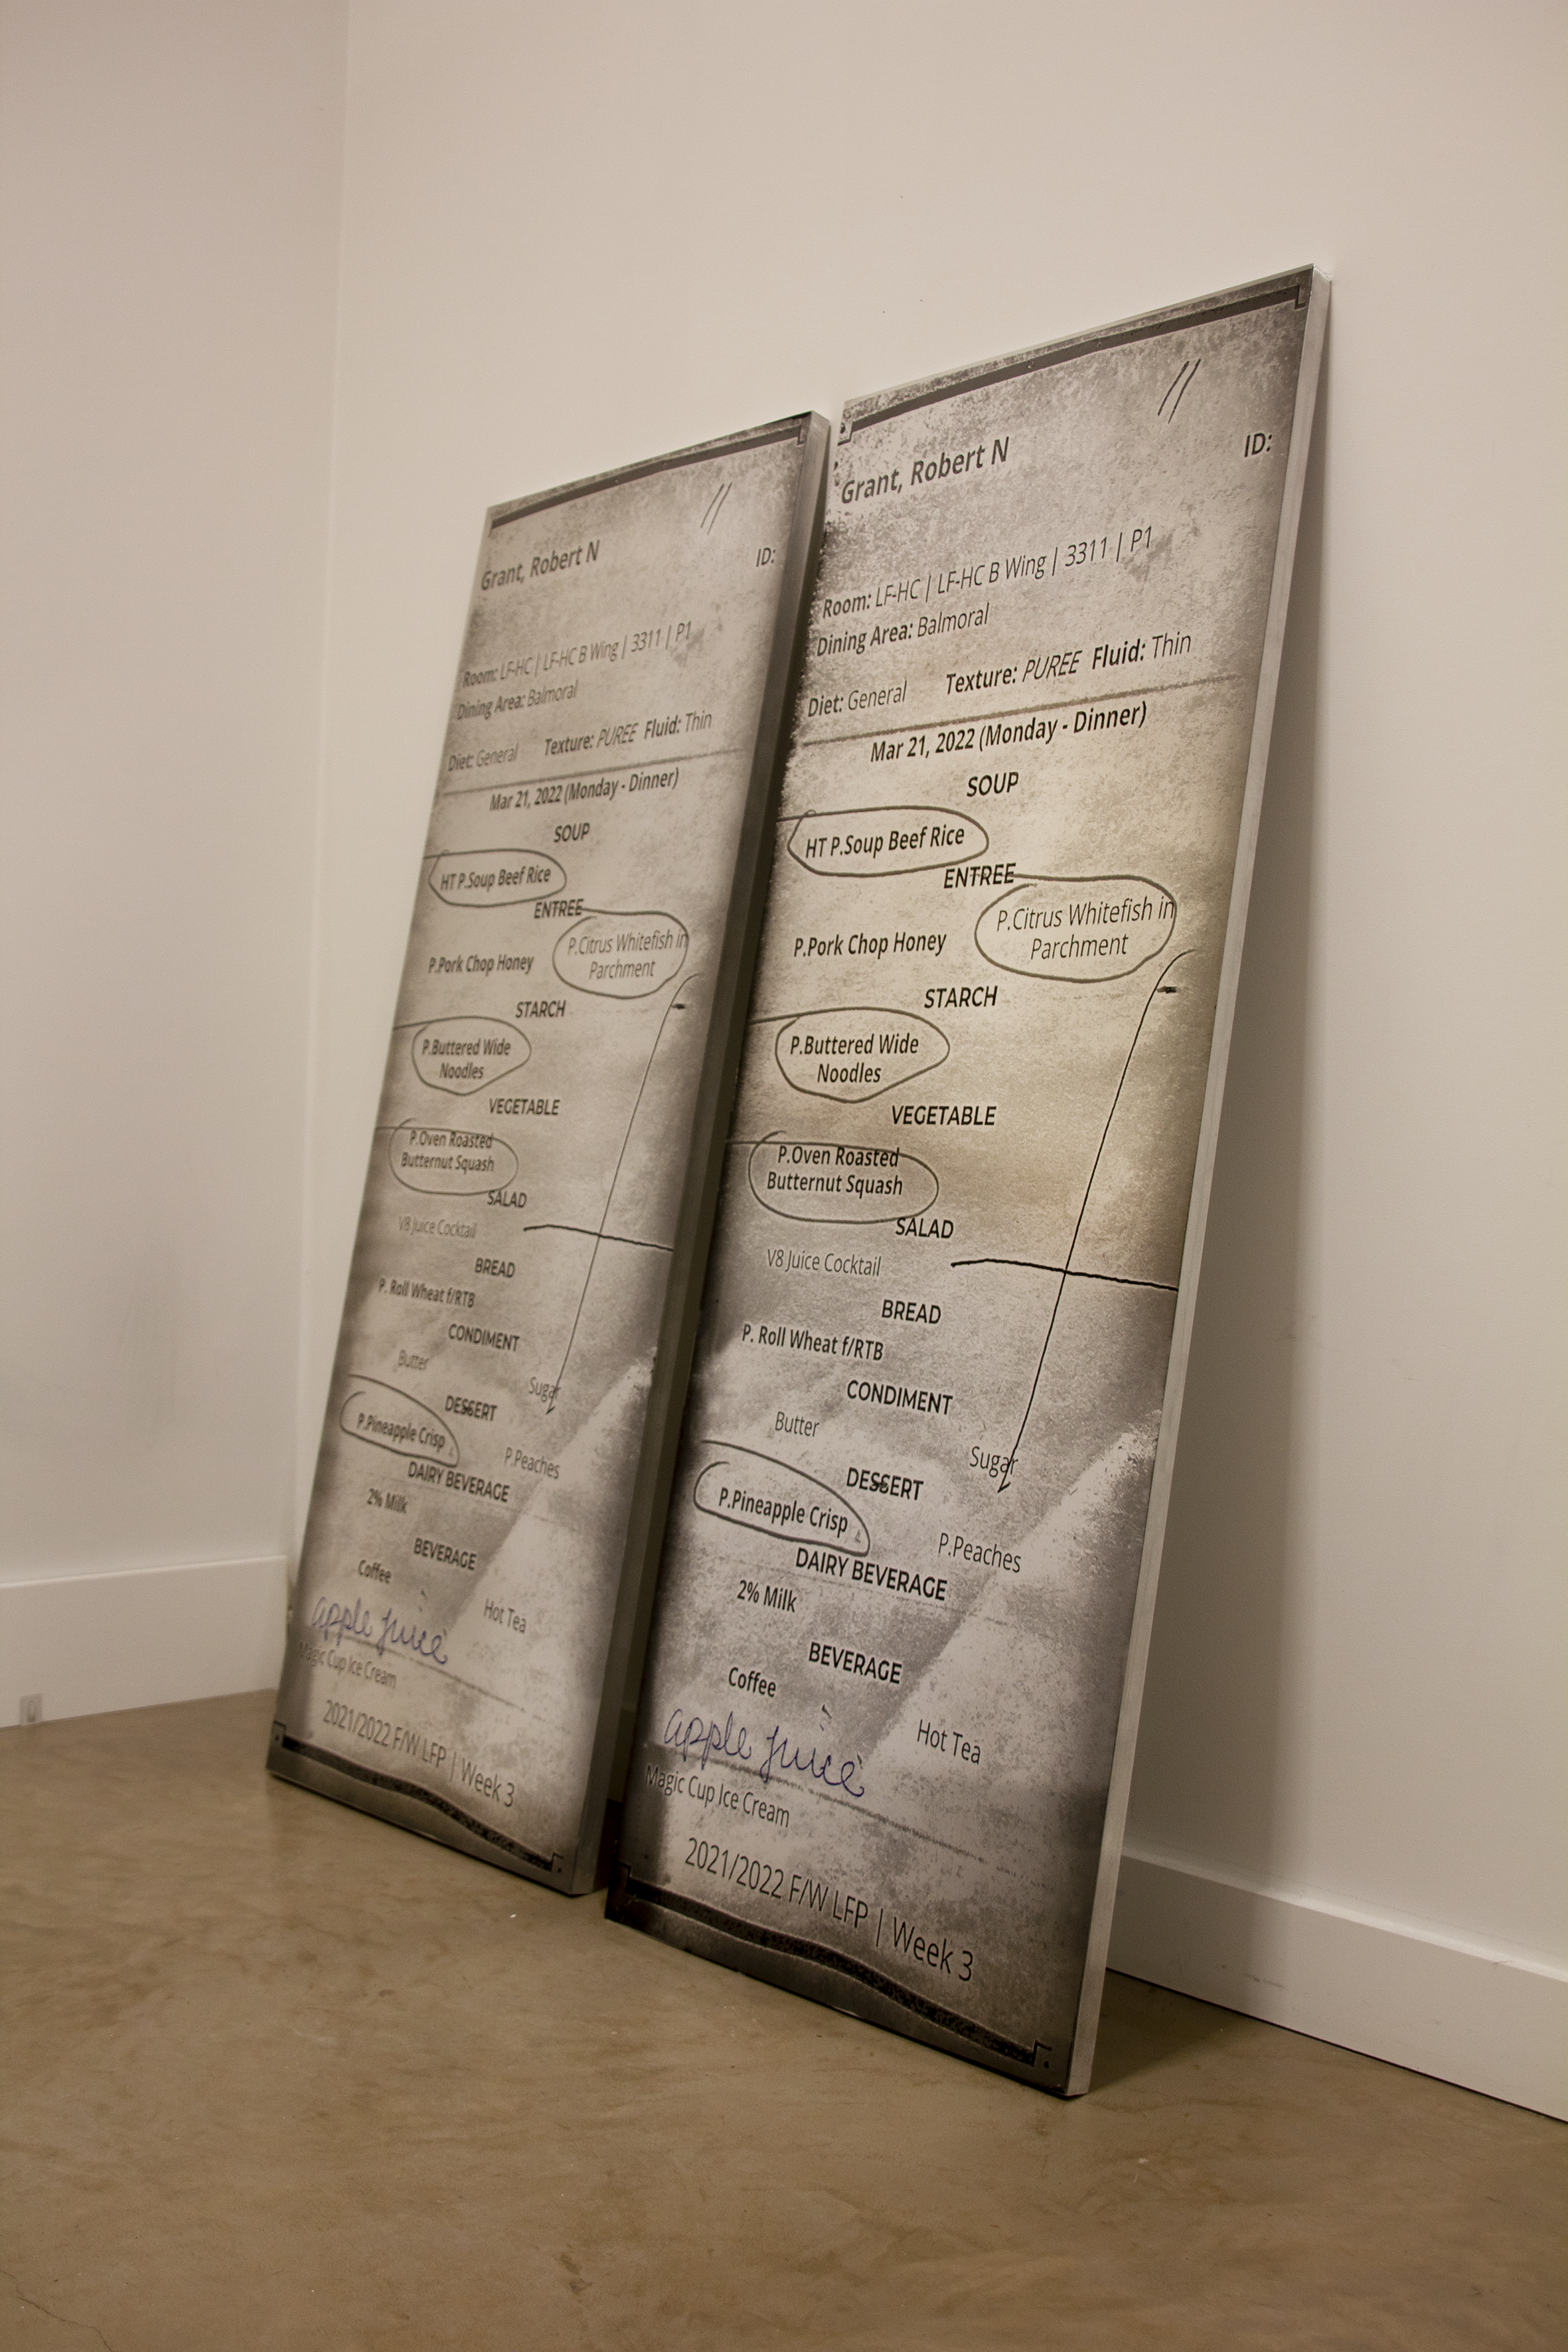 Grant, Robert N
ID:
Room: LF-HC | LF-HC B Wing | 3311 | P1
Dining Area: Balmoral
Diet: General Texture: PUREE Fluid: Thin
Mar 21, 2022 (Monday - Dinner)
SOUP
HT P.Soup Beef Rice
ENTREE
P.Pork Chop Honey
P.Citrus Whitefish in
Parchment
STARCH
P.Buttered Wide
Noodles
VEGETABLE
P.Oven Roasted
Butternut Squash
SALAD
V8 Juice Cocktail
BREAD
P. Roll Wheat f/RTB
CONDIMENT
Butter
Sugar
DESSERT
P.Pineapple Crisp
P.Peaches
DAIRY BEVERAGE
2% Milk
BEVERAGE
Coffee
Hot Tea
apple juice
Magic Cup Ice Cream
2021/2022 F/W LFP | Week 3
Grant, Robert N
ID:
Room: LF-HC | LF-HC B Wing | 3311 | P1
Dining Area: Balmoral
Diet: General Texture: PUREE Fluid: Thin
Mar 21, 2022 (Monday - Dinner)
SOUP
HT P.Soup Beef Rice
ENTREE
P.Pork Chop Honey
P.Citrus Whitefish in
Parchment
STARCH
P.Buttered Wide
Noodles
VEGETABLE
P.Oven Roasted
Butternut Squash
SALAD
V8 Juice Cocktail
BREAD
P. Roll Wheat f/RTB
CONDIMENT
Butter
Sugar
DESSERT
P.Pineapple Crisp
P.Peaches
DAIRY BEVERAGE
2% Milk
BEVERAGE
Coffee
Hot Tea
apple juice
Magic Cup Ice Cream
2021/2022 F/W LFP | Week 3